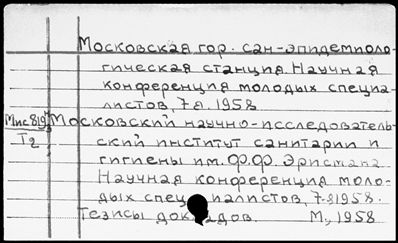 Московская гор. сан-эпидемиоло-
гическая станция. Научная
конференция молодых специа-
листов, 7-я. 1958
Мис819 Московский научно-исследователь-
Т2 ский институт санитарии и
гигиены им. Ф.Ф. Эрисмана
Научная конференция моло-
дых специалистов, 7-я. 1958.
Тезисы докладов. М., 1958